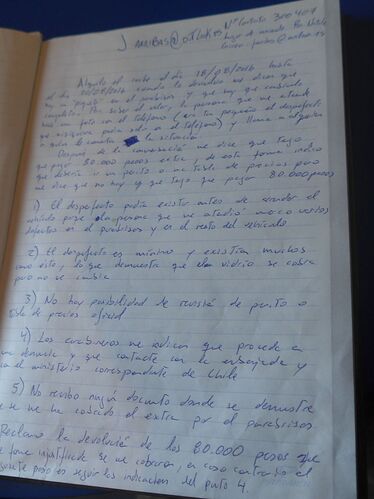 J ARRIBAS@OUTLOOK.ES Nº Contrato 300407
Alquilo el coche el día 18/08/2016 hasta
el día 20/08/2016 cuando lo devuelvo me dicen que
hay un "piquete" en el parabrisas y que hay que cambiarlo
completo. Por sobre el valor, la persona que me atiende
hace una foto con el teléfono (era tan pequeño el desperfecto
que ni siquiera podía salir en el teléfono) y llama a alguien
a quien le comenta la situación
Después de la conversación me dice que tengo
que pagar 80.000 pesos extra, de esta forma indico
que debería ir un perito o una tabla de precios pero
me dice que no hay y que tengo que pagar 80.000 pesos
1) El desperfecto podía existir antes de
vehículo porque la persona que me atendió marcó varios
defectos en el parabrisas y en el resto del vehículo
2) El desperfecto es mínimo y existían muchos
como este, lo que demuestra que el vidrio se cobra
pero no se cambia
3) No hay posibilidad de revisión de perito o
tabla de precios oficial
4) Los carabineros me indican que proceda a
una denuncia y que contacte con la embajada y
con el ministerio correspondiente de Chile
5) No recibo ningún documento donde se demuestre
que se me ha cobrado el extra por el parabrisas
Reclamo la devolución de los 80.000 pesos que
de forma injustificada se me cobraron, en caso contrario el
siguiente paso es seguir las indicaciones del punto 4.